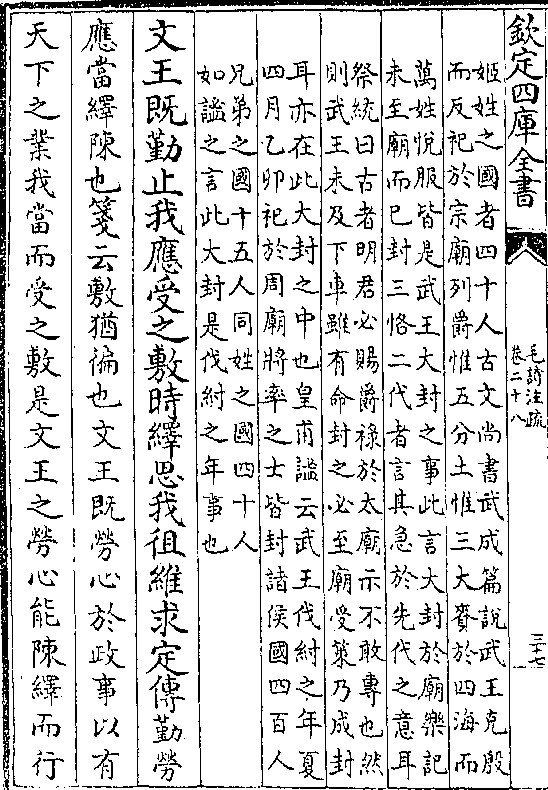 欽定四庫全書
毛詩注疏
卷二十八
三十七
姬姓之國者四十人古文尚書武成篇說武王克殷
而反祀於宗廟列爵惟五分土惟三大賚於四海而
萬姓悅服皆是武王大封之事此言大封於廟樂記
未至廟而已封三恪二代者言其急於先代之意耳
祭統曰古者明君必賜爵祿於太廟示不敢專也然
則武王未及下車雖有命封之必至廟受策乃成封
耳亦在此大封之中也皇甫謐云武王伐紂之年夏
四月乙卯祀於周廟將率之士皆封諸侯國四百人
兄弟之國十五人同姓之國四十人
如謐之言此大封是伐紂之年事也
文王既勤止我應受之敷時繹思我徂維求定傳勤勞
應當繹陳也箋云敷猶徧也文王既勞心於政事以有
天下之業我當而受之敷是文王之勞心能陳繹而行